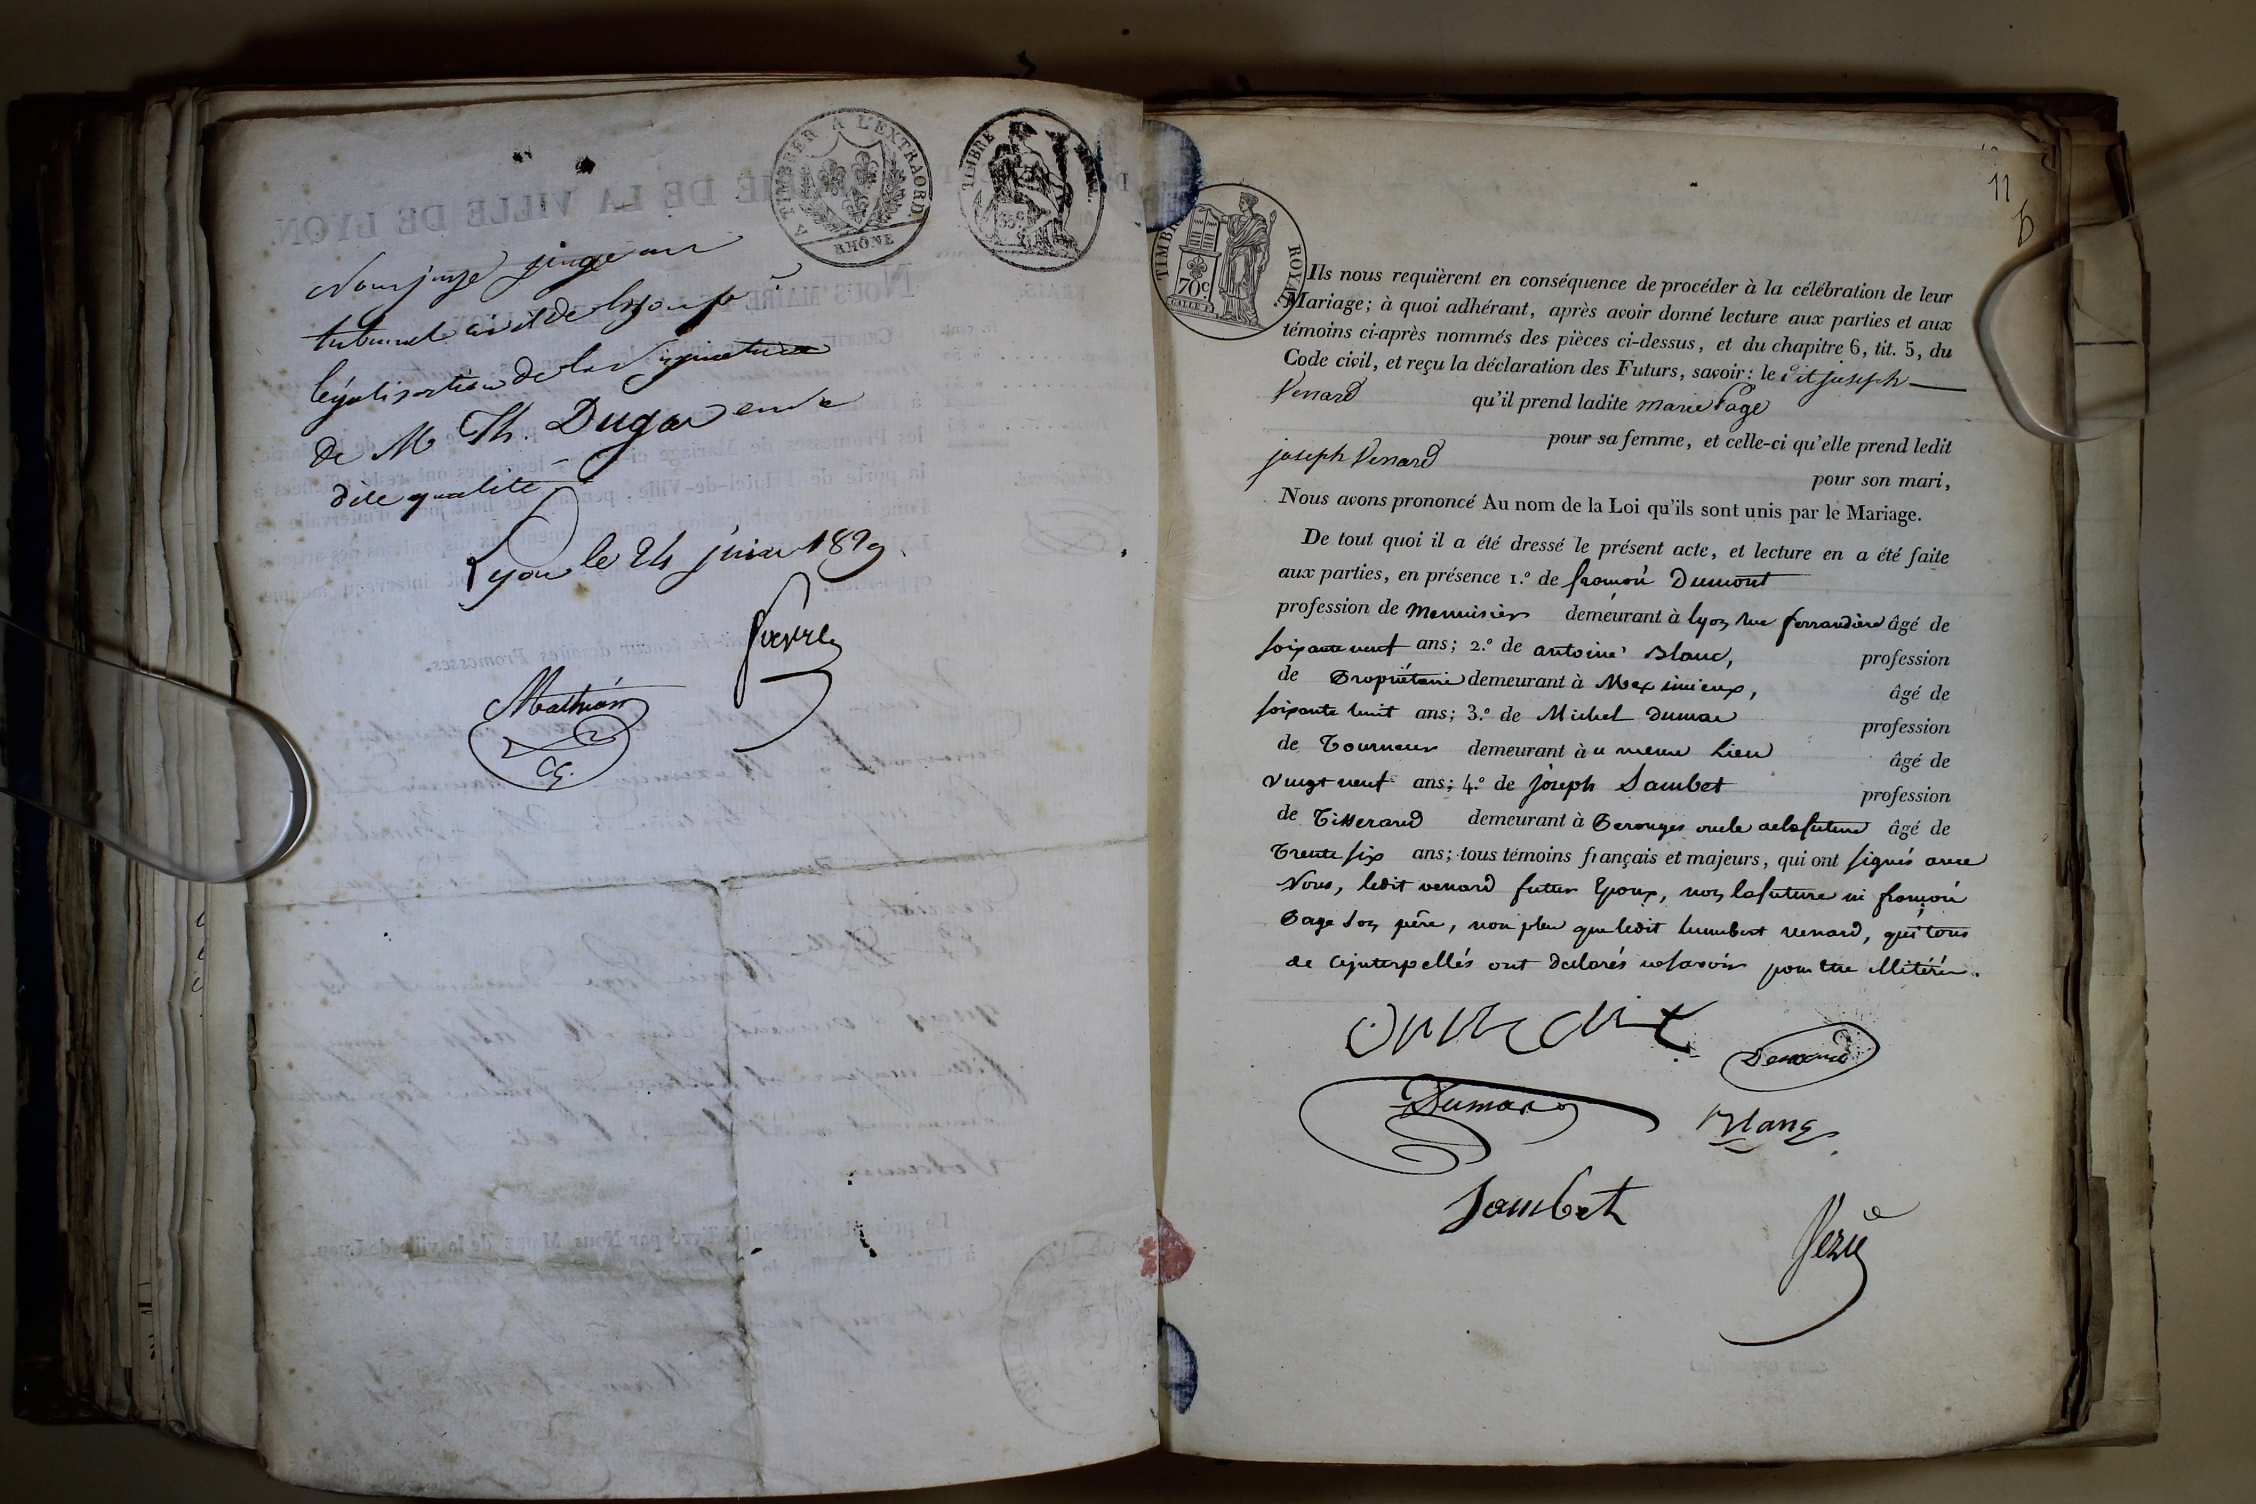 A TIMBRER A L'EXTRAORD.
RHÔNE
TIMBRE
35 c
Nous juge
tribunal civil de Lyon
légalisation de la signature
de M Th. Dugas en sa
dite qualité
Lyon le 24 1829
Favre
Mathian
11
TIMBRE ROYAL
70 c.
Ils nous requièrent en conséquence de procéder à la célébration de leur
Mariage; à quoi adhérant, après avoir donné lecture aux parties et aux
témoins ci-après nommés des pièces ci-dessus, et du chapitre 6, tit. 5, du
Code civil, et reçu la déclaration des Futurs, savoir: le dit joseph
Venard qu'il prend ladite marie Page
pour sa femme, et celle-ci qu'elle prend ledit
joseph Venard
pour son mari,
Nous avons prononcé Au nom de la Loi qu'ils sont unis par le Mariage.
De tout quoi il a été dressé le présent acte, et lecture en a été faite
aux parties, en présence 1.º de françois Dumont
profession de Menuisier demeurant à lyon rue ferrandière âgé de
soixante neuf ans; 2.º de antoine Blanc, profession
de Propriétaire demeurant à Meximieux, âgé de
soixante huit ans; 3.º de Michel Dumas profession
de Tourneur demeurant à u meme Lieu âgé de
vingt neuf ans; 4.º de joseph Sambet profession
de Tisserand demeurant à Perouges oncle de la future âgé de
Trente six ans; tous témoins français et majeurs, qui ont signés avec
Nous, ledit venard futur Epoux, non la future ni françois
Page son père, non plus que ledit humbert venard, qui tous
de ce interpellés ont déclarés ne savoir pour être illitérés.
Dumas
Blanc
Sambet